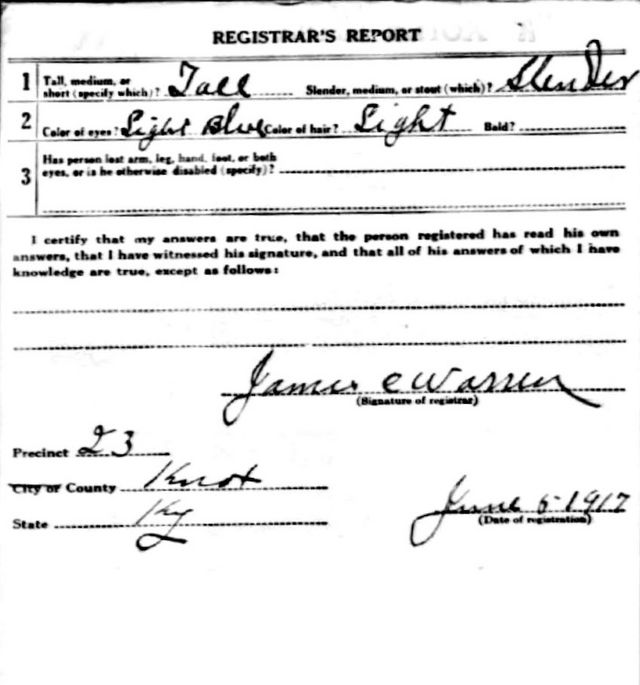 REGISTRAR'S REPORT
1 Tall, medium, or short (specify which)? Tall Slender, medium, or stout (which)? Slender
2 Color of eyes? Light Blue Color of hair? Light Bald?
3 Has person lost arm, leg, hand, foot, or both
eyes, or is he otherwise disabled (specify)?
I certify that my answers are true, that the person registered has read his own
answers, that I have witnessed his signature, and that all of his answers of which I have
knowledge are true, except as follows:
James C Warren
(Signature of registrar)
Precinct 23
City or County Knox
State Ky
June 5-1917
(Date of registration)